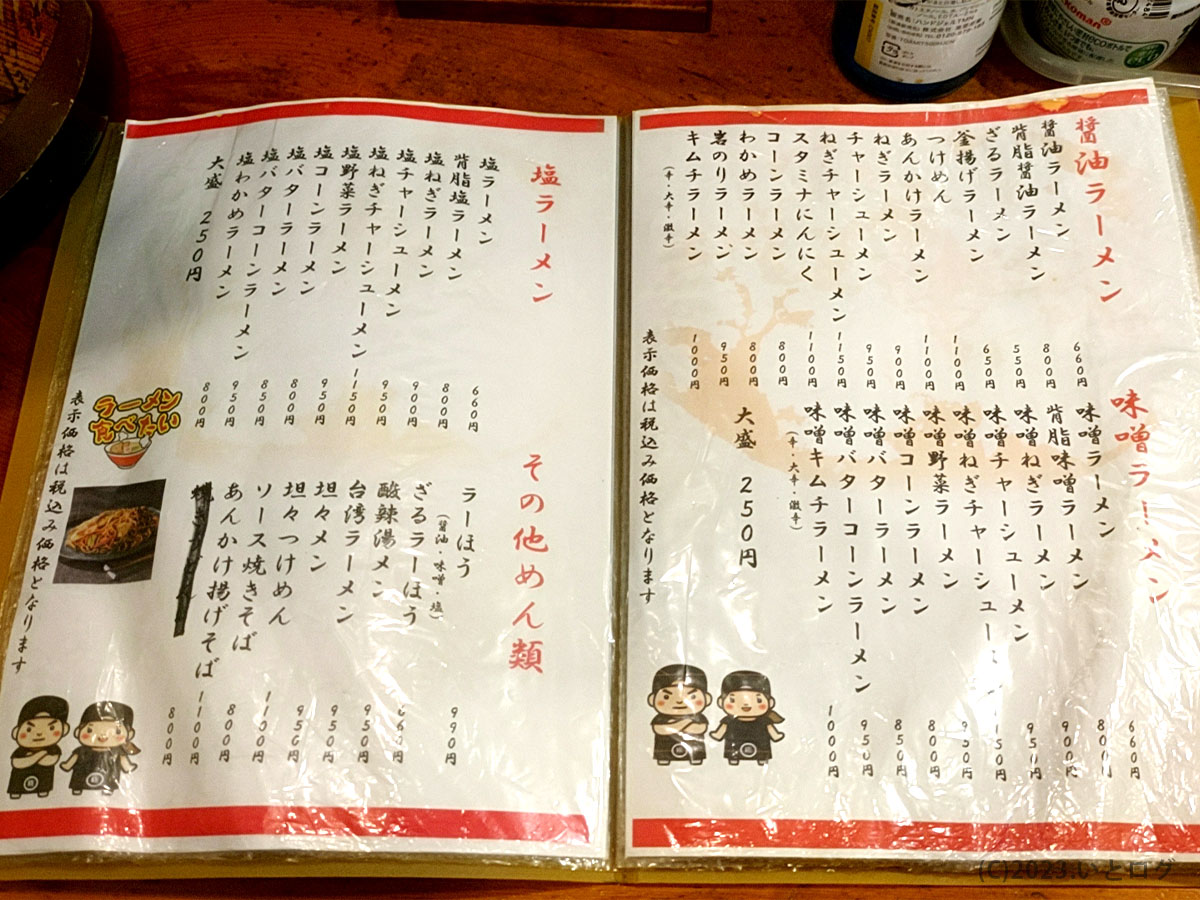 醤油ラーメン
醤油ラーメン 660円
背脂醤油ラーメン 800円
ざるラーメン 550円
釜揚げラーメン 650円
つけめん 1100円
あんかけラーメン 1100円
ねぎラーメン 900円
チャーシューメン 950円
ねぎチャーシューメン 1150円
スタミナにんにく 1100円
コーンラーメン 800円
わかめラーメン 800円
岩のりラーメン 950円
キムチラーメン 1000円
(辛・大辛・激辛)
味噌ラーメン
味噌ラーメン 660円
背脂味噌ラーメン 800円
味噌ねぎラーメン 900円
味噌チャーシューメン 950円
味噌ねぎチャーシューメン 1150円
味噌野菜ラーメン 950円
味噌コーンラーメン 800円
味噌バターラーメン 850円
味噌バターコーンラーメン 950円
味噌キムチラーメン 1000円
(辛・大辛・激辛)
大盛 250円
表示価格は税込み価格となります
塩ラーメン
塩ラーメン 660円
背脂塩ラーメン 800円
塩ねぎラーメン 900円
塩チャーシューメン 950円
塩ねぎチャーシューメン 1150円
塩野菜ラーメン 950円
塩コーンラーメン 800円
塩バターラーメン 850円
塩バターコーンラーメン 950円
塩わかめラーメン 800円
大盛 250円
その他めん類
ラーほう 990円
(醤油・味噌・塩)
ざるラーほう 660円
酸辣湯メン 950円
台湾ラーメン 950円
坦々メン 950円
坦々つけめん 1100円
ソース焼きそば 800円
あんかけ揚げそば 1100円
800円
ラーメン
食べたい
表示価格は税込み価格となります
(C)2023.いとログ